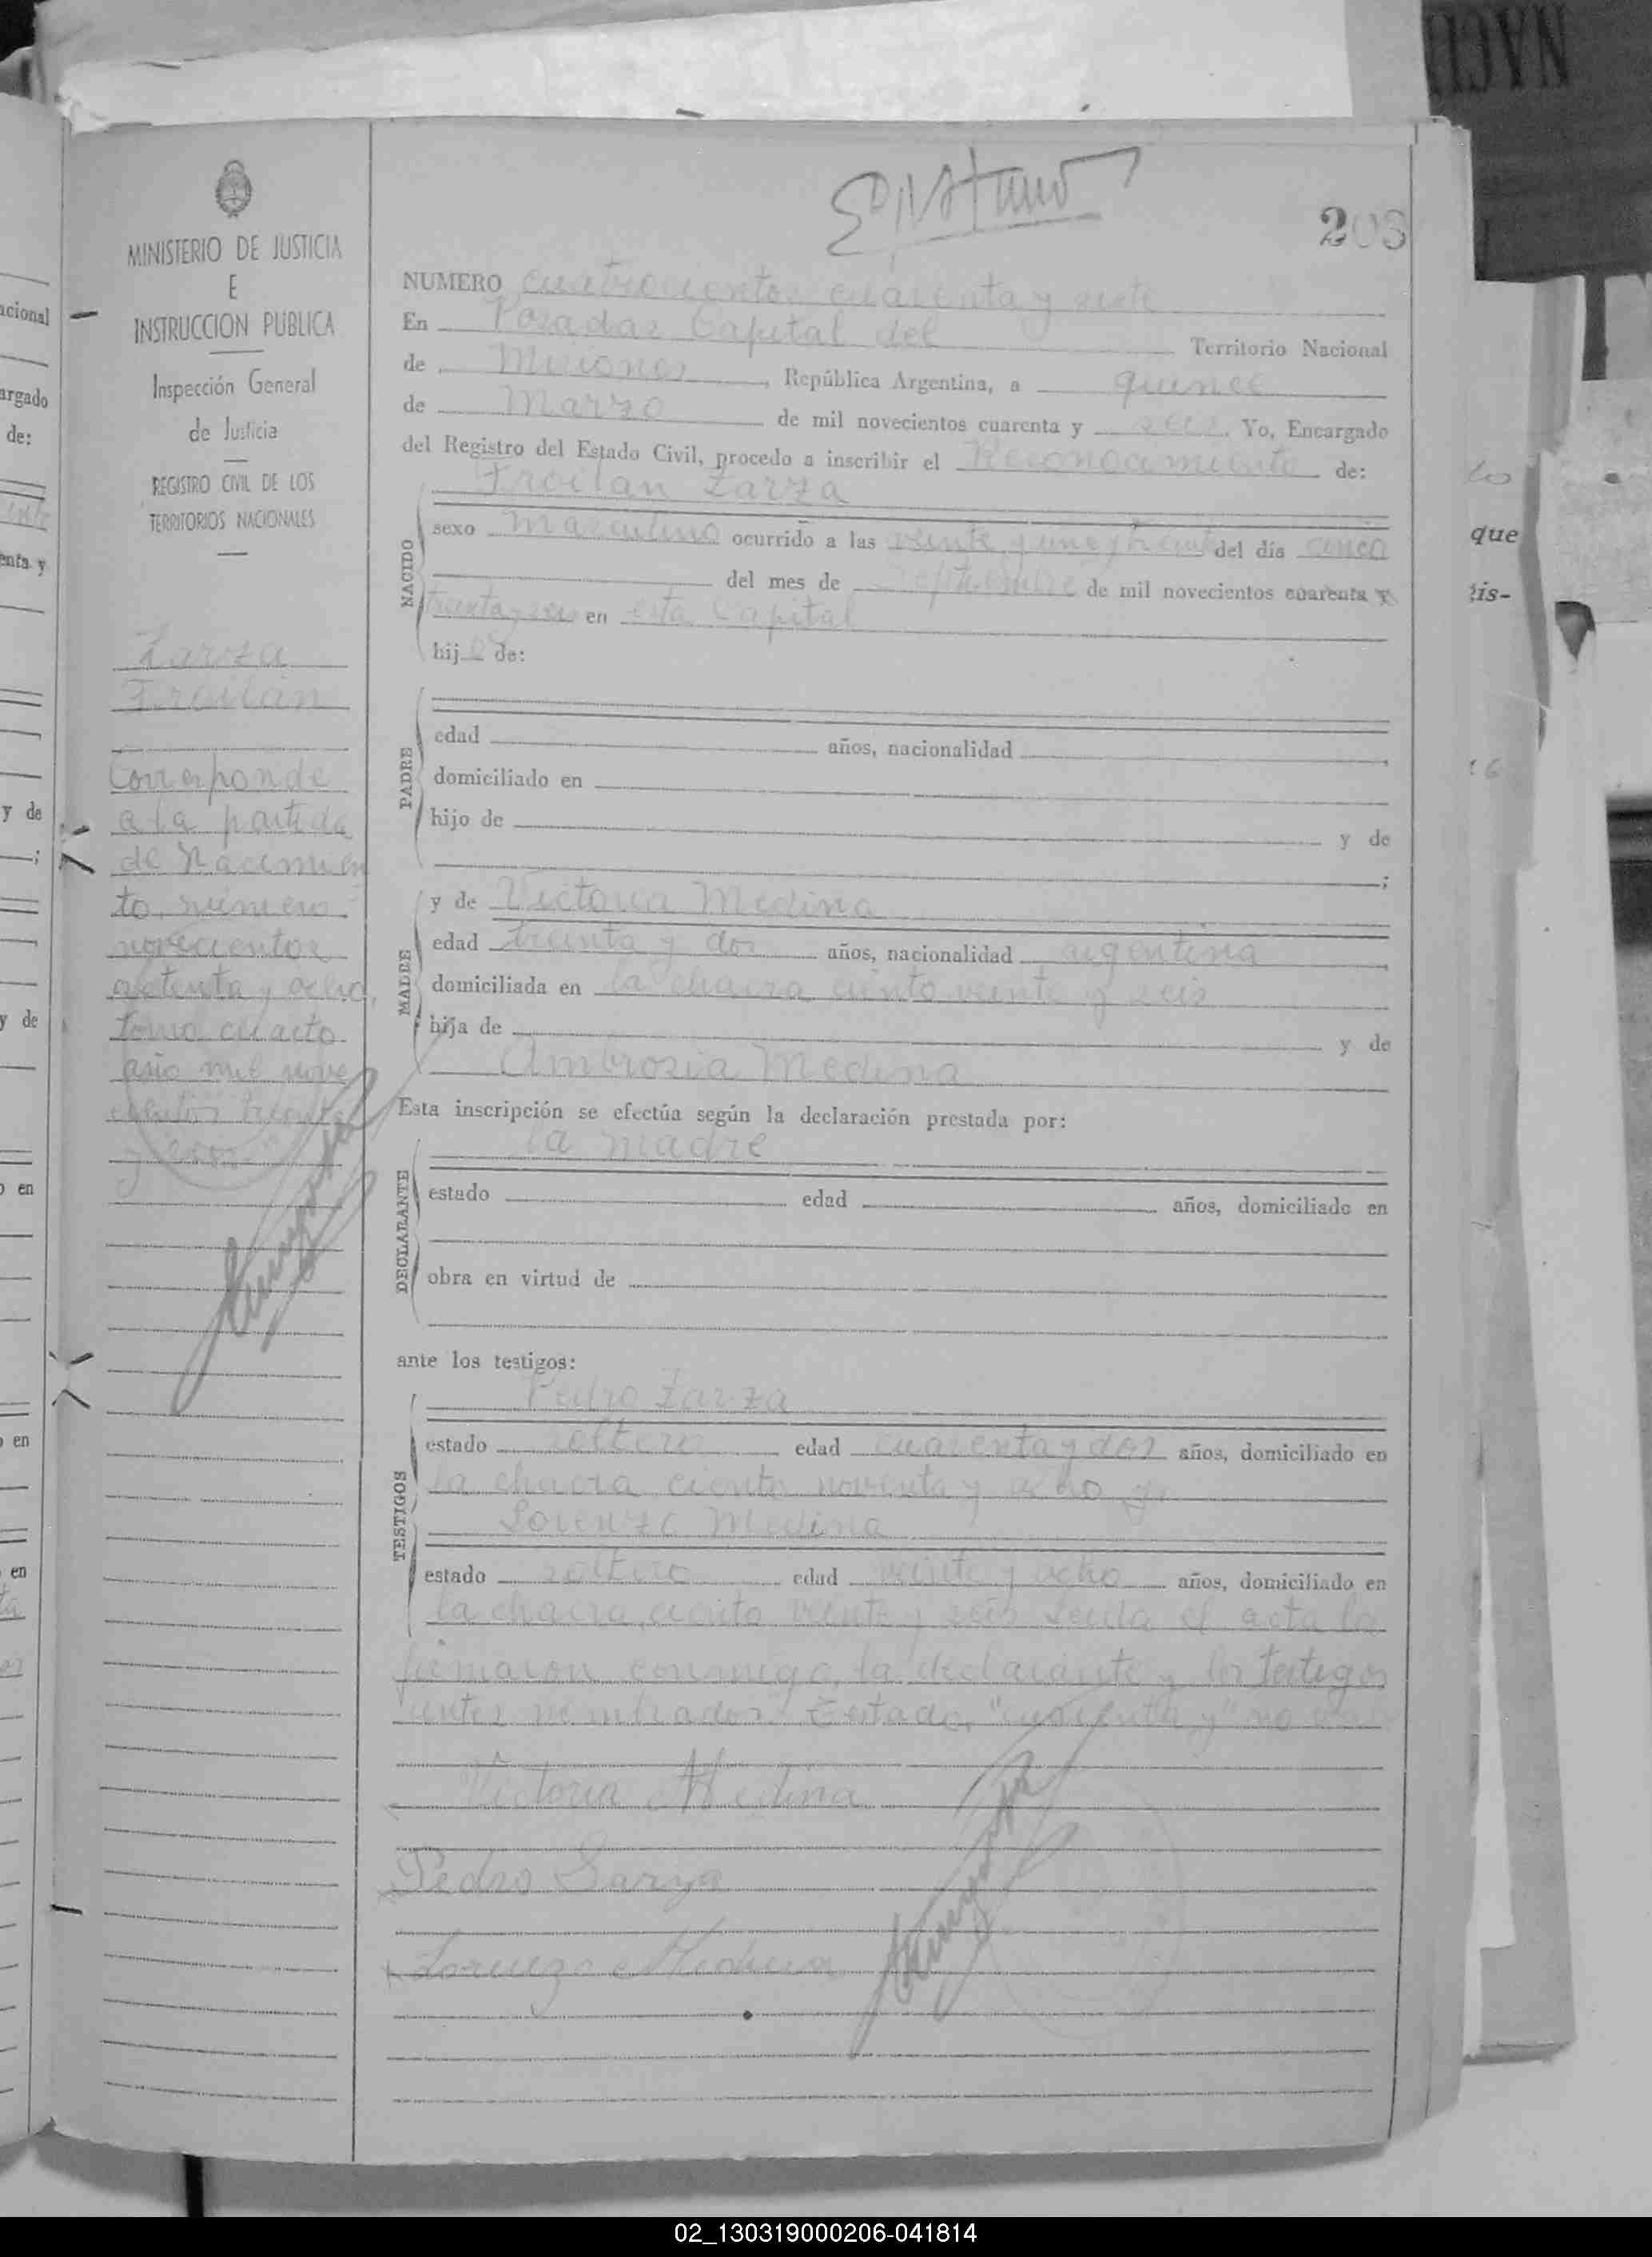 NACI
208
MINISTERIO DE JUSTICIA
E
INSTRUCCION PUBLICA
Inspección General
de Justicia
REGISTRO CIVIL DE LOS
TERRITORIOS NACIONALES
Zarza
Froilán
Corresponde
a la partida
de Nacimien
to número
novecientos
setenta y ocho
tomo cuarto
año mil nove
cientos treinta
y seis
NUMERO cuatrocientos cuarenta y siete
En Posadas Capital del Territorio Nacional
de Misiones, República Argentina, a quince
de Marzo de mil novecientos cuarenta y seis. Yo, Encargado
del Registro del Estado Civil, procedo a inscribir el Reconocimiento de:
Froilan Zarza
NACIDO
sexo Masculino ocurrido a las veinte y una y treinta del día cinco
del mes de septiembre de mil novecientos cuarenta y
treinta y seis en esta Capital
hijo de:
PADRE
edad años, nacionalidad
domiciliado en
hijo de y de
;
MADRE
y de Victoria Medina
edad treinta y dos años, nacionalidad argentina
domiciliada en la chacra ciento veinte y seis
hija de y de
Ambrosia Medina
Esta inscripción se efectúa según la declaración prestada por:
la madre
DECLARANTE
estado edad años, domiciliado en
obra en virtud de
ante los testigos:
Pedro Zarza
TESTIGOS
estado soltero edad cuarenta y dos años, domiciliado en
la chacra ciento noventa y ocho y
Lorenzo Medina
estado soltero edad veinte y ocho años, domiciliado en
la chacra ciento veinte y seis Leida el acta la
firmaron conmigo, la declarante y los testigos
antes nombrados Testado, "cuarenta y" no vale
Victoria Medina
Pedro Sarza
Lorenzo Medina
acional
argado
de:
enta y
y de
y de
en
en
en
que
tis-
02_130319000206-041814